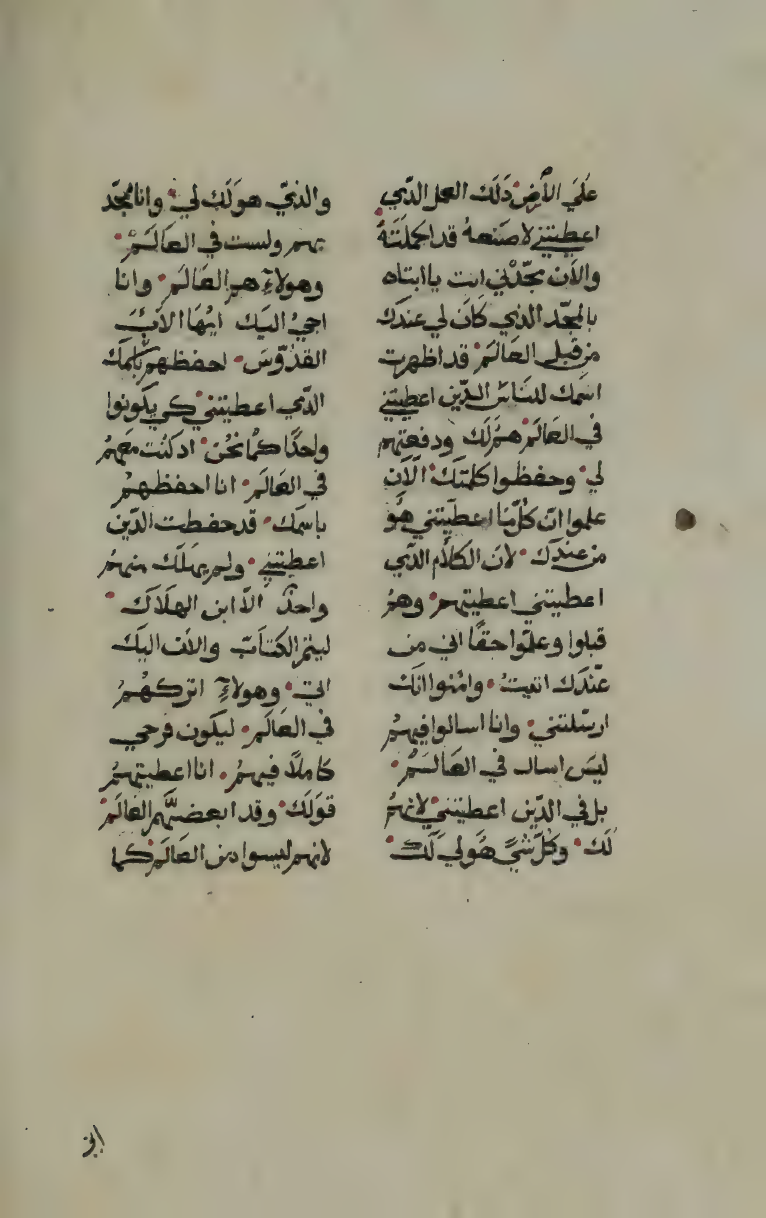 عَلَي الأَرضِ ذَلَك العمل الذّي
اعطيتني لاصنعهُ قد اكملتَهُ
والاَن مجّدْني انت ياابتاه
بالمجّد الذّي كاَن لي عندَك
من قبل العاَلَم قد اظهرت
اسَمك للنَاسْ الذّين اعطيتني
في العالَم همُ لَك ودفعتهم
لي وحفظوا كلمتَك الآن
علموا انّ كلّما اعطيتني هُو
من عندَك لانَ الكلاَم الذّي
اعطيتني اعطيتهم وهمُ
قبلوا وعلمّوا حقًا اني من
عنّدَك اتيتُ وامنوا انَك
ارسَلتني وانا اسالوا فيهمُ
ليسَ اسال في العَالَمُ
بل في الذّين اعطيتني لانهمُ
لَك وكلّ شيً هَو لي لَك
والذيّ هو لَك لي وانا مُجّد
بهم ولست في العَالَمْ
وهولاءِ هم العَالَم وانا
اجيُ اليَك ايُها الاَبُ
القدّوسَ احفظهم باسَمك
الذّي اعطيتني كي يكَونوا
واحدًا كماَ نحُن اد كنُت معهمُ
في العَالَم انا احفظهمُ
باسمَك قد حفظت الذّين
اعطيتني ولم يهَلَك منهمُ
واحدٌ الاّ ابن الهلَاك
ليتمّ الكتَاب والاَن اليَك
اتي وهولاءِ اتركهُمُ
في العَالَم ليكون فرحي
كاملاً فيهمُ انا اعطيتهمُ
قوَلَك وقد ابعضهَّم العَالَم
لانهم ليسوا من العَالَم كما